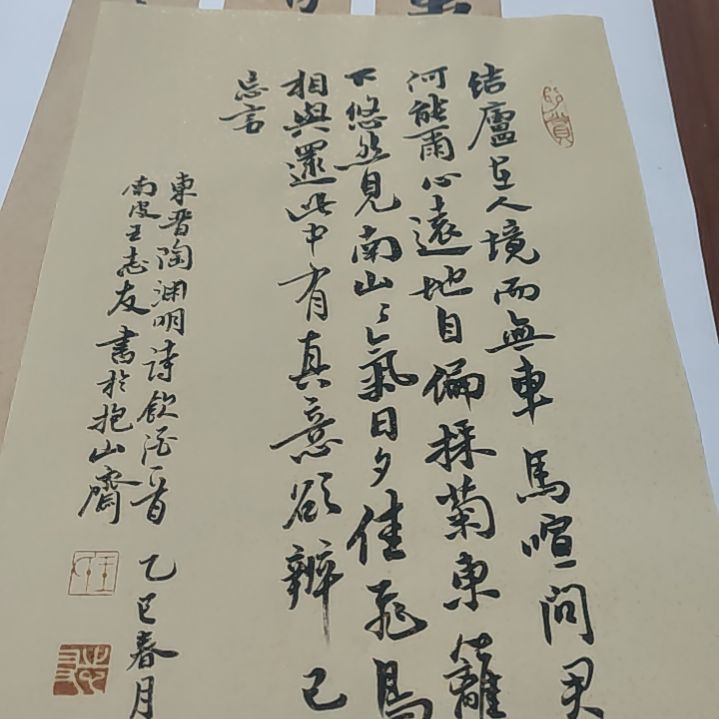 结廬在人境而無車馬喧問君
何能爾心遠地自偏採菊東籬
下悠然見南山々氣日夕佳飛鳥
相與還此中有真意欲辨已
忘言
東晋陶渊明詩飲酒一首乙巳春月
南皮王志友書於抱山齋